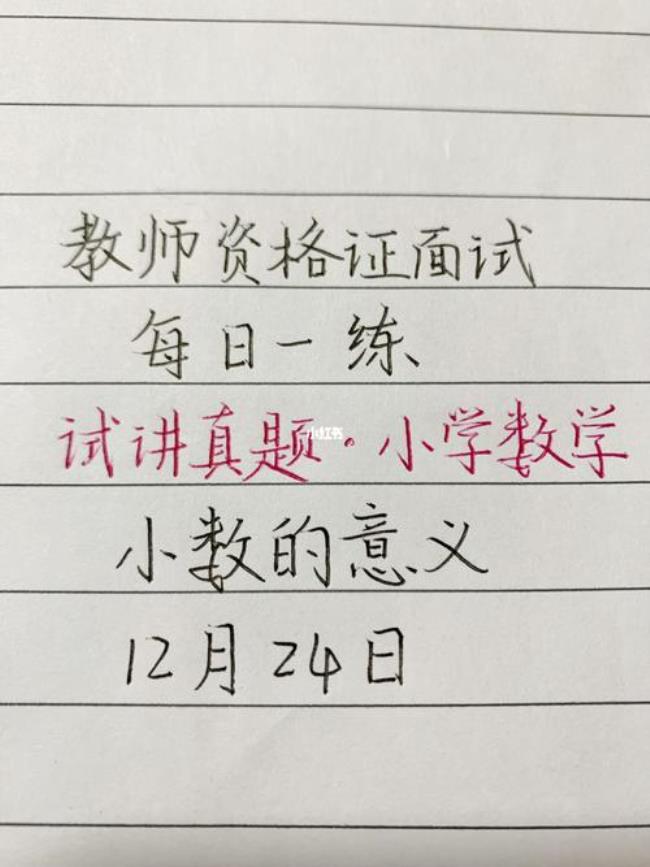 教师资格证面试
每日一练
试讲真题·小学数学
小红书
小数的意义
12月24日